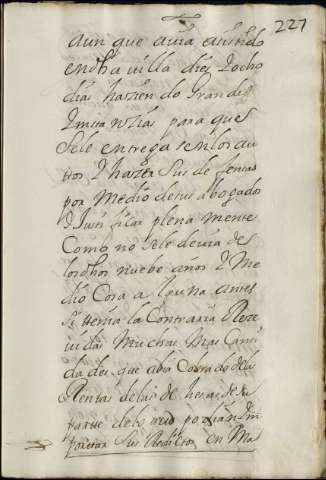 227
aun que avia asistido
en dha villa dies y ocho
dias hasiendo Grandes
Ynstanzias para que
se le entregasen los au
tios y hazer sus defensas
por medio de sus abogados
y Justificar plena mente
Como no se le devia de
los dhos nuebe años y me
dio Cosa alguna antes
si tenia la Contraria Reze
vidas muchas mas Canti
dades que abia Cobrado de las
Rentas de las de
parte de lo podian Ym
portar sus Reditos en Ma